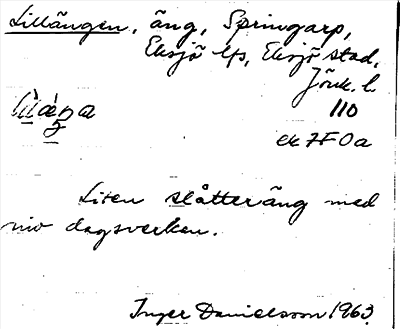 Lillängen, äng, Springarp,
Eksjö lfs, Eksjö stad,
Jönk. l.
110
ek 7F0a
Liten slåtteräng med
nio dagsverken.
Inger Danielsson 1963